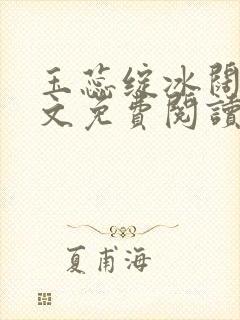 玉蕊绽冰阔
文免費閱讀
夏甫海